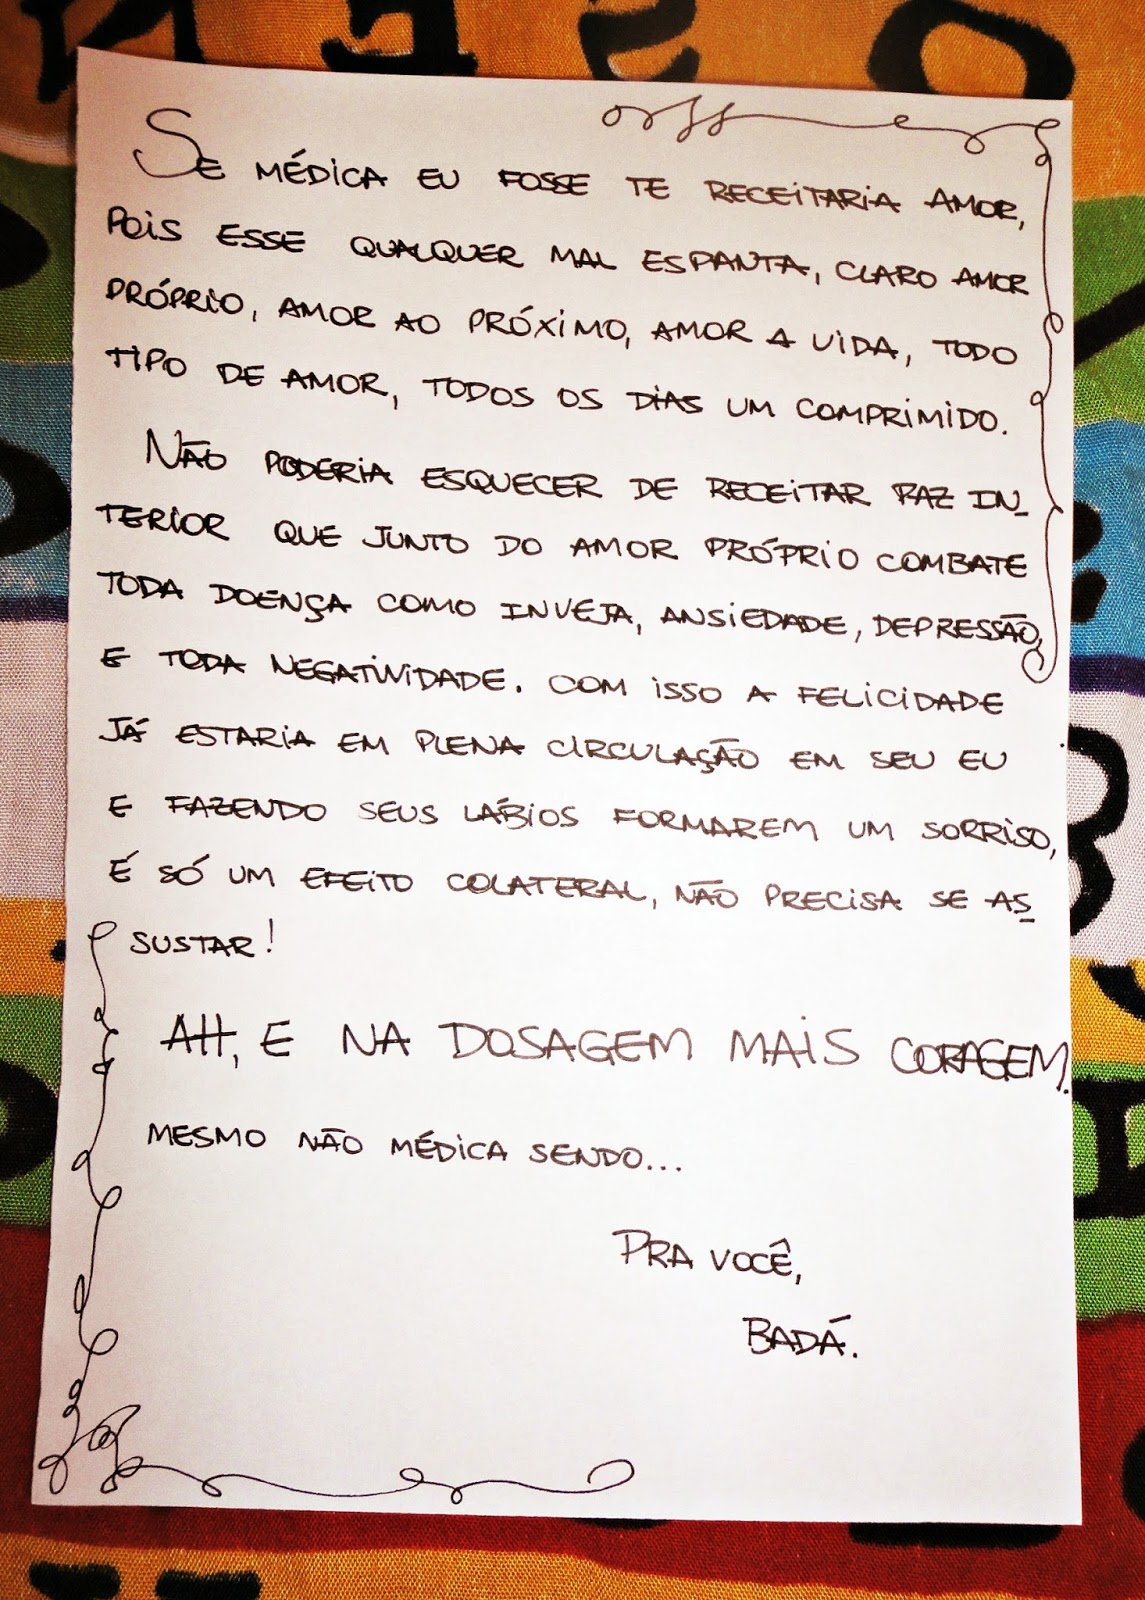 Se MÉDICA EU FOSSE TE RECEITARIA AMOR,
POIS ESSE QUALQUER MAL ESPANTA, CLARO AMOR
PRÓPRIO, AMOR AO PRÓXIMO, AMOR A VIDA, TODO
TIPO DE AMOR, TODOS OS DIAS UM COMPRIMIDO.
NÃO PODERIA ESQUECER DE RECEITAR PAZ IN_
TERIOR QUE JUNTO DO AMOR PRÓPRIO COMBATE
TODA DOENÇA COMO INVEJA, ANSIEDADE, DEPRESSÃO,
E TODA NEGATIVIDADE. COM ISSO A FELICIDADE
JÁ ESTARIA EM PLENA CIRCULAÇÃO EM SEU EU
E FAZENDO SEUS LÁBIOS FORMAREM UM SORRISO,
É SÓ UM EFEITO COLATERAL, NÃO PRECISA SE AS_
SUSTAR!
AH, E NA DOSAGEM MAIS CORAGEM.
MESMO NÃO MÉDICA SENDO...
PRA VOCÊ,
BADÁ.